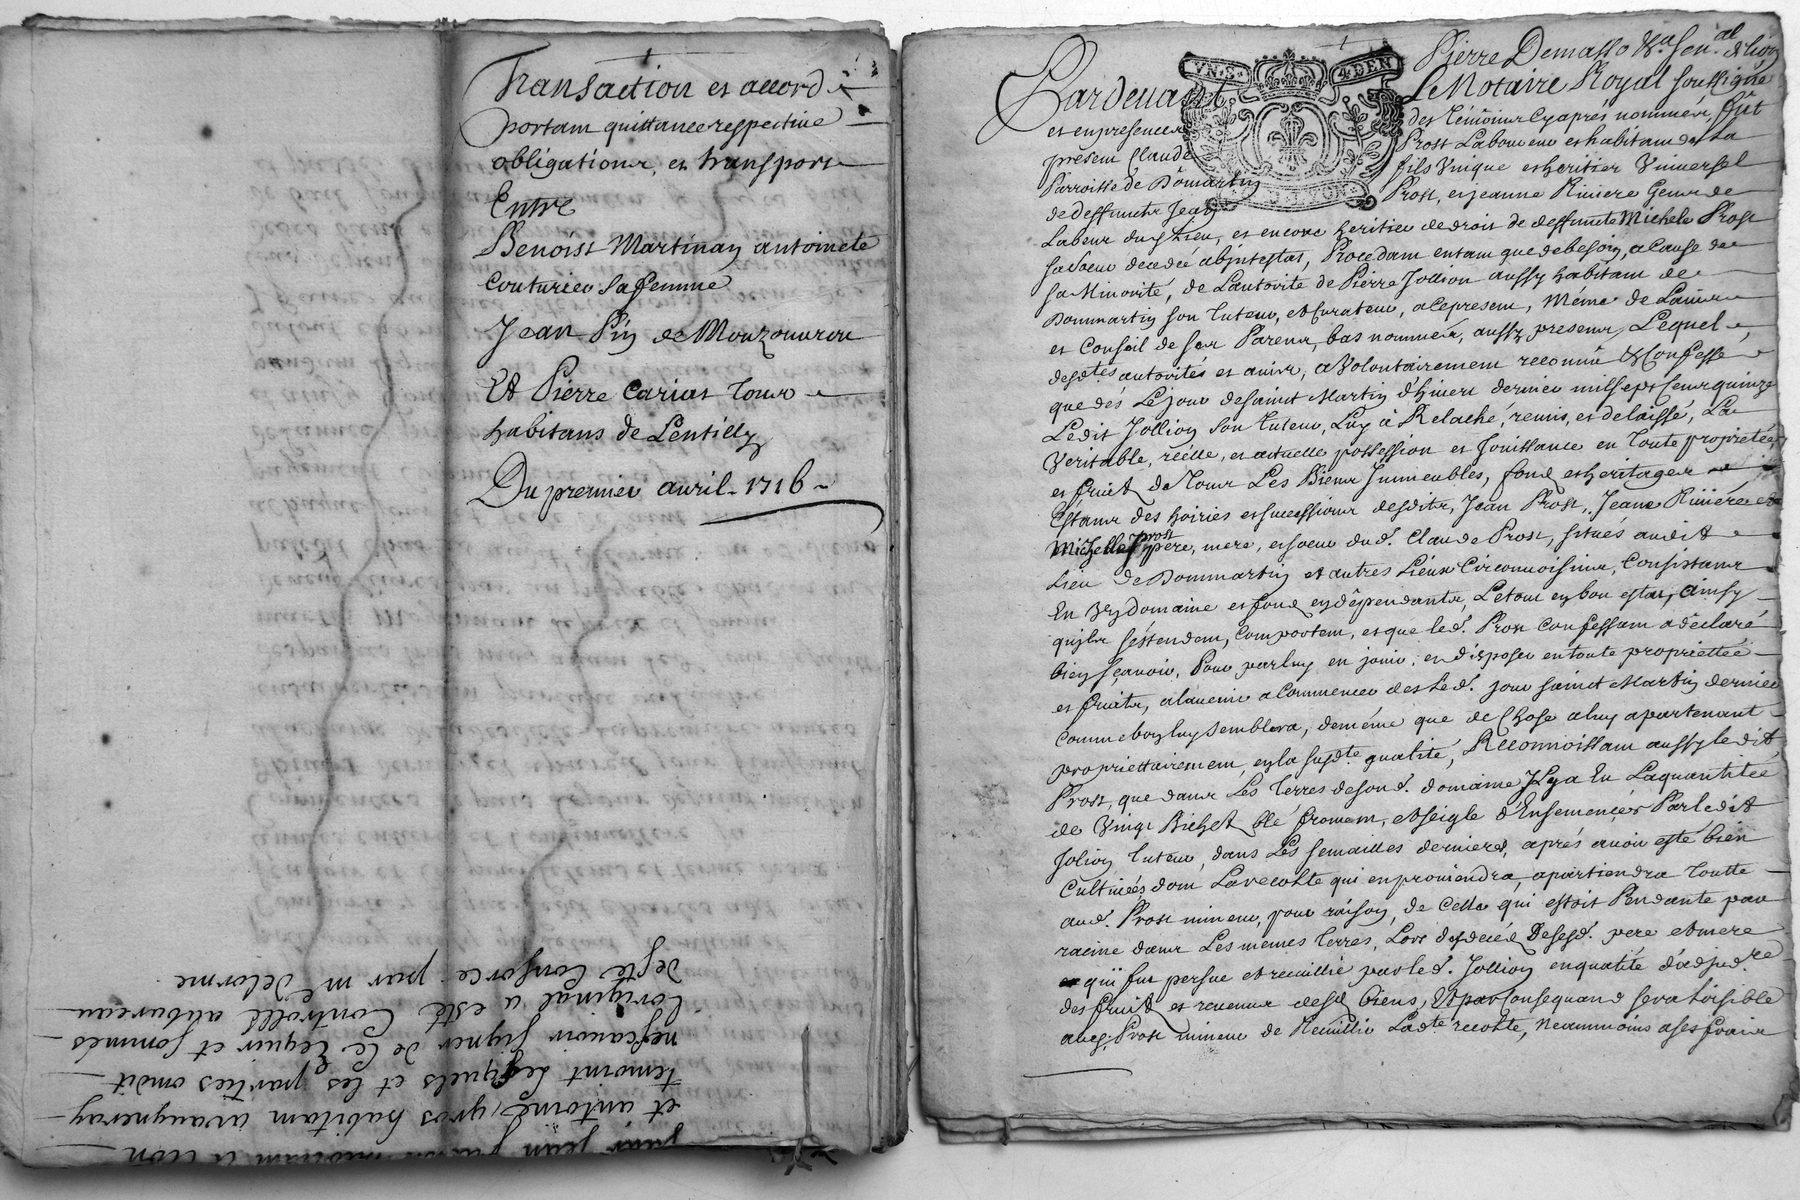 Transaction et accord
portant quittance respectiue
obligations, et transport
Entre
Benoist Martinay antoinete
couturier sa femme
Jean Pin de Monzouurou
Et Pierre Carias tous
habitans de Lentilly
Du premier auril 1716
Jean
et antoine gros habitant auaugneray
temoint lesquels et les parties ondit
nescauoir signer de ce requis et sommés
loriginal a esté Controllé aubureau
deste Conforce par me delorme
VN.S. 4 DEN
Pierre Demasso
Pardeuant Le Notaire Royal soussigné
et en presence des témoins Cyaprés nommés, fût
present Claude Prost Laboureur et habitant de La
Parroisse de Dômartin fils Vnique et heritier Vniversel
de deffuncts Jean Prost, et jeanne Riuiere Gens de
Labeur dud. Lieu, et encore heritier de droit de deffuncte Michele Prost
sa soeur decedée abjntestat, Procedant entant que de besoin, a Cause de
sa Minorité, de Lautorité de Pierre Jollion aussy habitant de
Dommartin son tuteur, et Curateur, a ce present, Méme de Lauis
et Conseil de ses Parens, bas nommés, aussy presens, Lequel
desdtes autorités et auis, a Volontairement reconnû & Confessé
que dés Le jour de saint Martin d'hiuer dernier mil sept Cens quinze
Ledit Jollion son tuteur, Luy à Relaché, remis, et delaissé, La
Veritable, réelle, et actuelle possession et Jouissance en toute proprieté
et fruits de Tous Les Biens Jmmeubles, fond et heritages
Estants des hoiries et successions desdits, Jean Prost, Jeane Riuiére et
Michelle prost pere, mere, et soeur dud. Claude Prost, situés audit
Lieu de Dommartin et autres Lieux Circonuoisins, Consistans
En Vn domaine et fond en dépendants, Le tout en bon estat, ainsy
quils s'estendent, Comportent, et que led. Prost Confessant a déclaré
bien sçauoir, Pour par luy en jouir, en disposer en toute proprietée
et fruits, a lauenir a Commencer dés Led. jour saint Martin dernier
Comme bon luy semblera, de méme que de Chose a luy apartenant
propriettairement, en la susdte. qualité, Reconnoissant aussy ledit
Prost, que dans Les terres desond. domaine Jl y a Eu La quantitée
de Vingt Bichets blé froment, et seigle d'Ensemencées Par ledit
Jolion tuteur, dans Les semailles derniéres, aprés auoir esté bien
Cultiuées, dont La recolte qui en prouiendra, apartiendra toutte
aud. Prost mineur, pour raison, de Celle qui estoit Pendante par
racine dans Les mémes terres, Lors du decéd Desesd. pere et mere
qui fut persue et recuillie par led. Jollion en qualité d'adjud.re
des fruits et reuenus desd. biens, Et par Consequand sera Loisible
aud. Prost mineur de Recuillir Ladte recolte, neammoins a ses frais